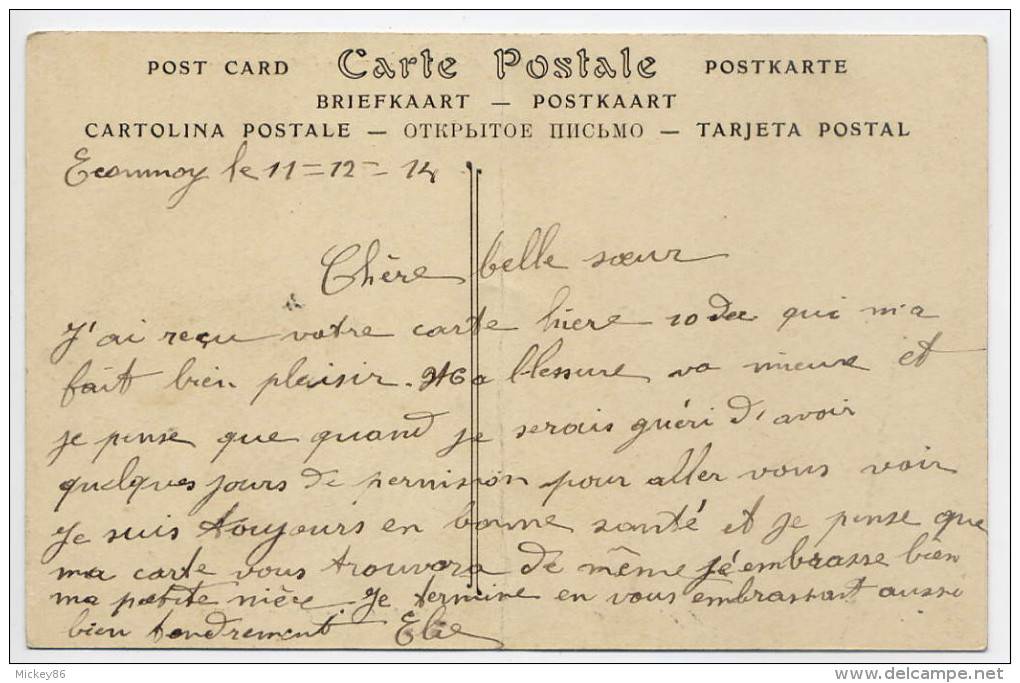 POST CARD Carte Postale POSTKARTE
BRIEFKAART — POSTKAART
CARTOLINA POSTALE — ОТКРЫТОЕ ПИСЬМО — TARJETA POSTAL
Ecommoy le 11 = 12 = 14
Chère belle sœur
J'ai reçu votre carte hiere 10 Dec qui m'a
fait bien plaisir. Ma blessure va mieux et
je pense que quand je serais guéri d'avoir
quelques jours de permision pour aller vous voir
Je suis toujours en bonne santé et je pense que
ma carte vous trouvera de même j'embrasse bien
ma petite nièce. Je termine en vous embrassant aussi
bien tendrement Elie
Mickey86
delcampe.net